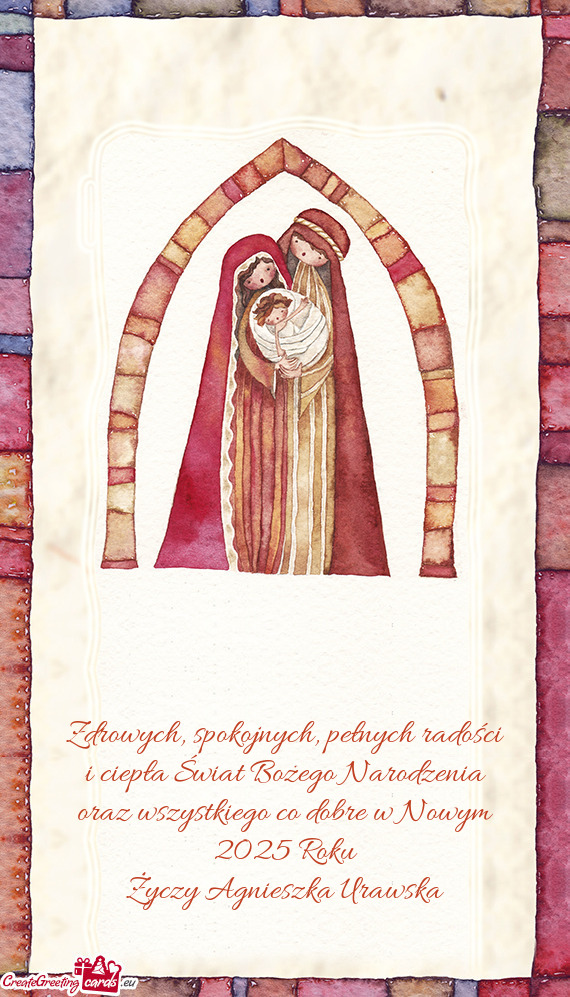 Zdrowych, spokojnych, pełnych radości
i ciepła Świat Bożego Narodzenia
oraz wszystkiego co dobre w Nowym
2025 Roku
Życzy Agnieszka Urawska
CreateGreeting cards .eu